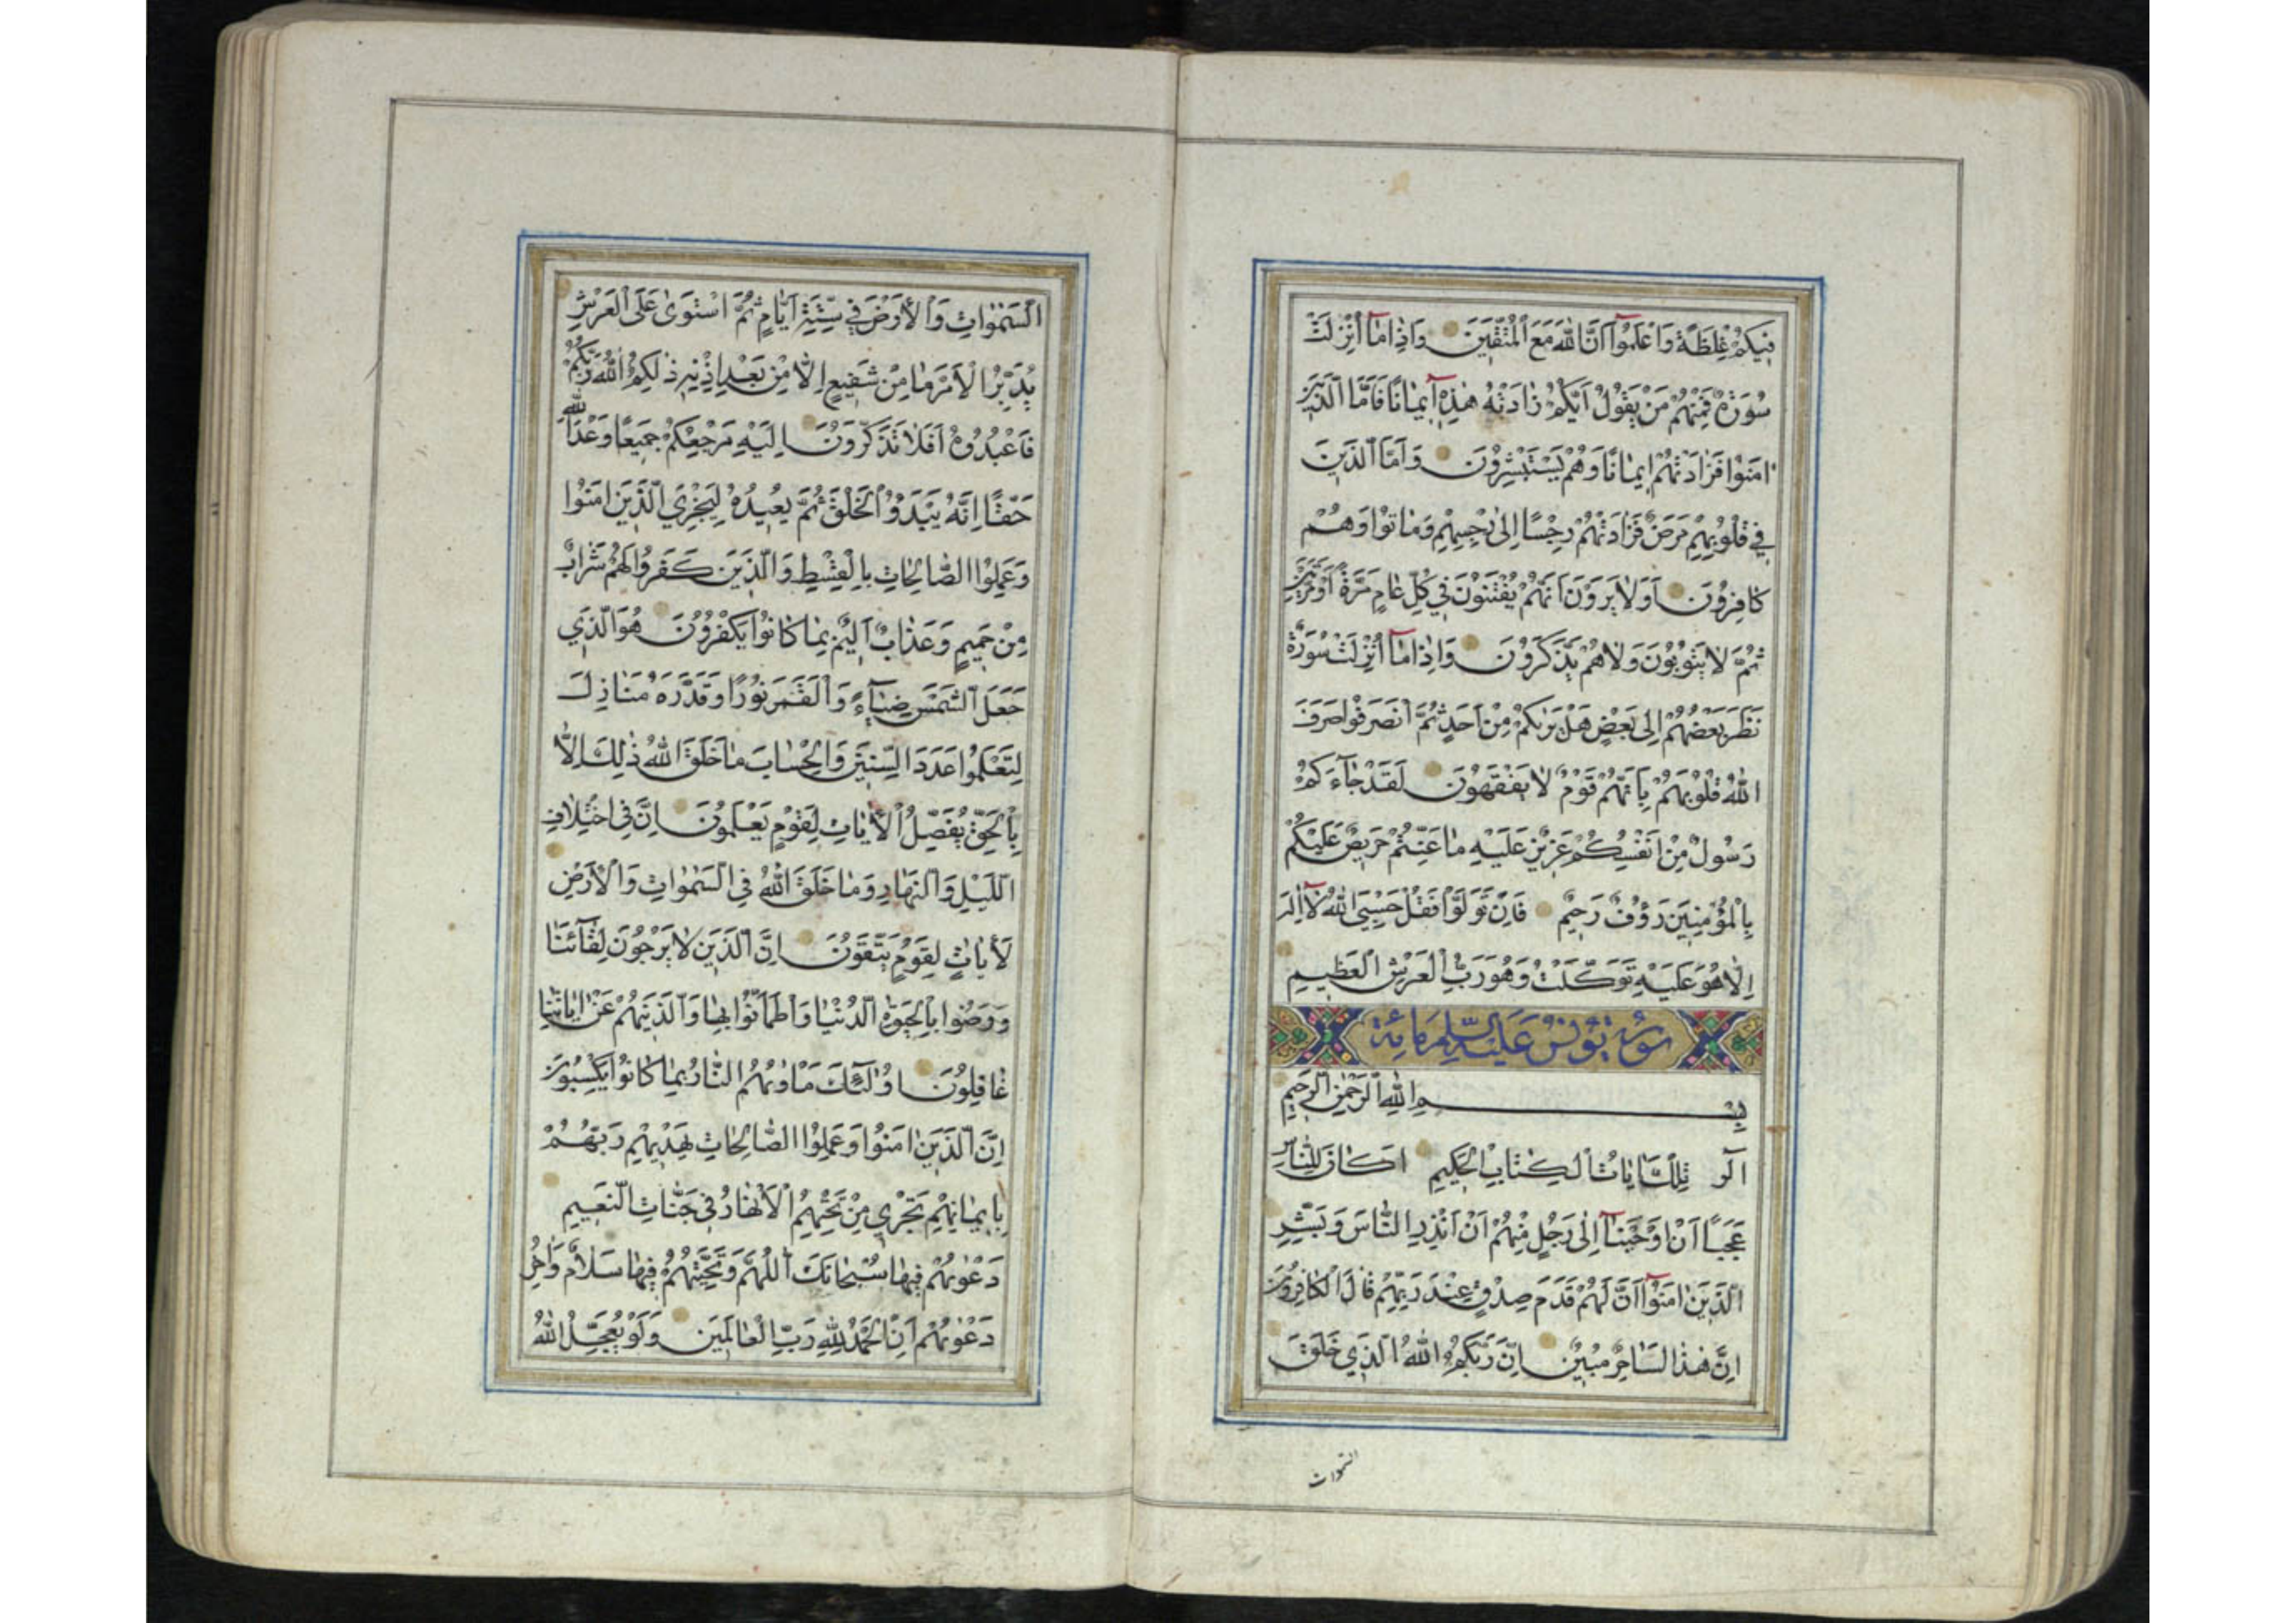 فِيكُمْ غِلْظَةً وَاعْلَمُوٓا اَنَّ اللّٰهَ مَعَ الْمُتَّقِينَ وَاِذَا مَآ اُنْزِلَتْ
سُورَةٌ فَمِنْهُمْ مَنْ يَقُولُ اَيُّكُمْ زَادَتْهُ هٰذِهٓ اِيمَانًا فَاَمَّا الَّذِينَ
اٰمَنُوا فَزَادَتْهُمْ اِيمَانًا وَهُمْ يَسْتَبْشِرُونَ وَاَمَّا الَّذِينَ
فِي قُلُوبِهِمْ مَرَضٌ فَزَادَتْهُمْ رِجْسًا اِلٰى رِجْسِهِمْ وَمَاتُوا وَهُمْ
كَافِرُونَ اَوَلَا يَرَوْنَ اَنَّهُمْ يُفْتَنُونَ فِي كُلِّ عَامٍ مَرَّةً اَوْ مَرَّتَيْنِ
ثُمَّ لَا يَتُوبُونَ وَلَا هُمْ يَذَّكَّرُونَ وَاِذَا مَآ اُنْزِلَتْ سُورَةٌ
نَظَرَ بَعْضُهُمْ اِلٰى بَعْضٍ هَلْ يَرٰيكُمْ مِنْ اَحَدٍ ثُمَّ انْصَرَفُوا صَرَفَ
اللّٰهُ قُلُوبَهُمْ بِاَنَّهُمْ قَوْمٌ لَا يَفْقَهُونَ لَقَدْ جَآءَكُمْ
رَسُولٌ مِنْ اَنْفُسِكُمْ عَزِيزٌ عَلَيْهِ مَا عَنِتُّمْ حَرِيصٌ عَلَيْكُمْ
بِالْمُؤْمِنِينَ رَؤُفٌ رَحِيمٌ فَاِنْ تَوَلَّوْا فَقُلْ حَسْبِيَ اللّٰهُ لَآ اِلٰهَ
اِلَّا هُوَ عَلَيْهِ تَوَكَّلْتُ وَهُوَ رَبُّ الْعَرْشِ الْعَظِيمِ
سورة يونس عليه السلم مائة
بِسْمِ اللّٰهِ الرَّحْمٰنِ الرَّحِيمِ
الٓر تِلْكَ اٰيَاتُ الْكِتَابِ الْحَكِيمِ اَكَانَ لِلنَّاسِ
عَجَبًا اَنْ اَوْحَيْنَآ اِلٰى رَجُلٍ مِنْهُمْ اَنْ اَنْذِرِ النَّاسَ وَبَشِّرِ
الَّذِينَ اٰمَنُوٓا اَنَّ لَهُمْ قَدَمَ صِدْقٍ عِنْدَ رَبِّهِمْ قَالَ الْكَافِرُونَ
اِنَّ هٰذَا لَسَاحِرٌ مُبِينٌ اِنَّ رَبَّكُمُ اللّٰهُ الَّذِي خَلَقَ
السموات
السَّمٰوَاتِ وَالْاَرْضَ فِي سِتَّةِ اَيَّامٍ ثُمَّ اسْتَوٰى عَلَى الْعَرْشِ
يُدَبِّرُ الْاَمْرَ مَا مِنْ شَفِيعٍ اِلَّا مِنْ بَعْدِ اِذْنِهِ ذٰلِكُمُ اللّٰهُ رَبُّكُمْ
فَاعْبُدُوهُ اَفَلَا تَذَكَّرُونَ اِلَيْهِ مَرْجِعُكُمْ جَمِيعًا وَعْدَ اللّٰهِ
حَقًّا اِنَّهُ يَبْدَؤُا الْخَلْقَ ثُمَّ يُعِيدُهُ لِيَجْزِيَ الَّذِينَ اٰمَنُوا
وَعَمِلُوا الصَّالِحَاتِ بِالْقِسْطِ وَالَّذِينَ كَفَرُوا لَهُمْ شَرَابٌ
مِنْ حَمِيمٍ وَعَذَابٌ اَلِيمٌ بِمَا كَانُوا يَكْفُرُونَ هُوَ الَّذِي
جَعَلَ الشَّمْسَ ضِيَآءً وَالْقَمَرَ نُورًا وَقَدَّرَهُ مَنَازِلَ
لِتَعْلَمُوا عَدَدَ السِّنِينَ وَالْحِسَابَ مَا خَلَقَ اللّٰهُ ذٰلِكَ اِلَّا
بِالْحَقِّ يُفَصِّلُ الْاٰيَاتِ لِقَوْمٍ يَعْلَمُونَ اِنَّ فِي اخْتِلَافِ
اللَّيْلِ وَالنَّهَارِ وَمَا خَلَقَ اللّٰهُ فِي السَّمٰوَاتِ وَالْاَرْضِ
لَاٰيَاتٍ لِقَوْمٍ يَتَّقُونَ اِنَّ الَّذِينَ لَا يَرْجُونَ لِقَآئَنَا
وَرَضُوا بِالْحَيٰوةِ الدُّنْيَا وَاطْمَاَنُّوا بِهَا وَالَّذِينَ هُمْ عَنْ اٰيَاتِنَا
غَافِلُونَ اُولٰٓئِكَ مَاْوٰيهُمُ النَّارُ بِمَا كَانُوا يَكْسِبُونَ
اِنَّ الَّذِينَ اٰمَنُوا وَعَمِلُوا الصَّالِحَاتِ يَهْدِيهِمْ رَبُّهُمْ
بِاِيمَانِهِمْ تَجْرِي مِنْ تَحْتِهِمُ الْاَنْهَارُ فِي جَنَّاتِ النَّعِيمِ
دَعْوٰيهُمْ فِيهَا سُبْحَانَكَ اللّٰهُمَّ وَتَحِيَّتُهُمْ فِيهَا سَلَامٌ وَاٰخِرُ
دَعْوٰيهُمْ اَنِ الْحَمْدُ لِلّٰهِ رَبِّ الْعَالَمِينَ وَلَوْ يُعَجِّلُ اللّٰهُ